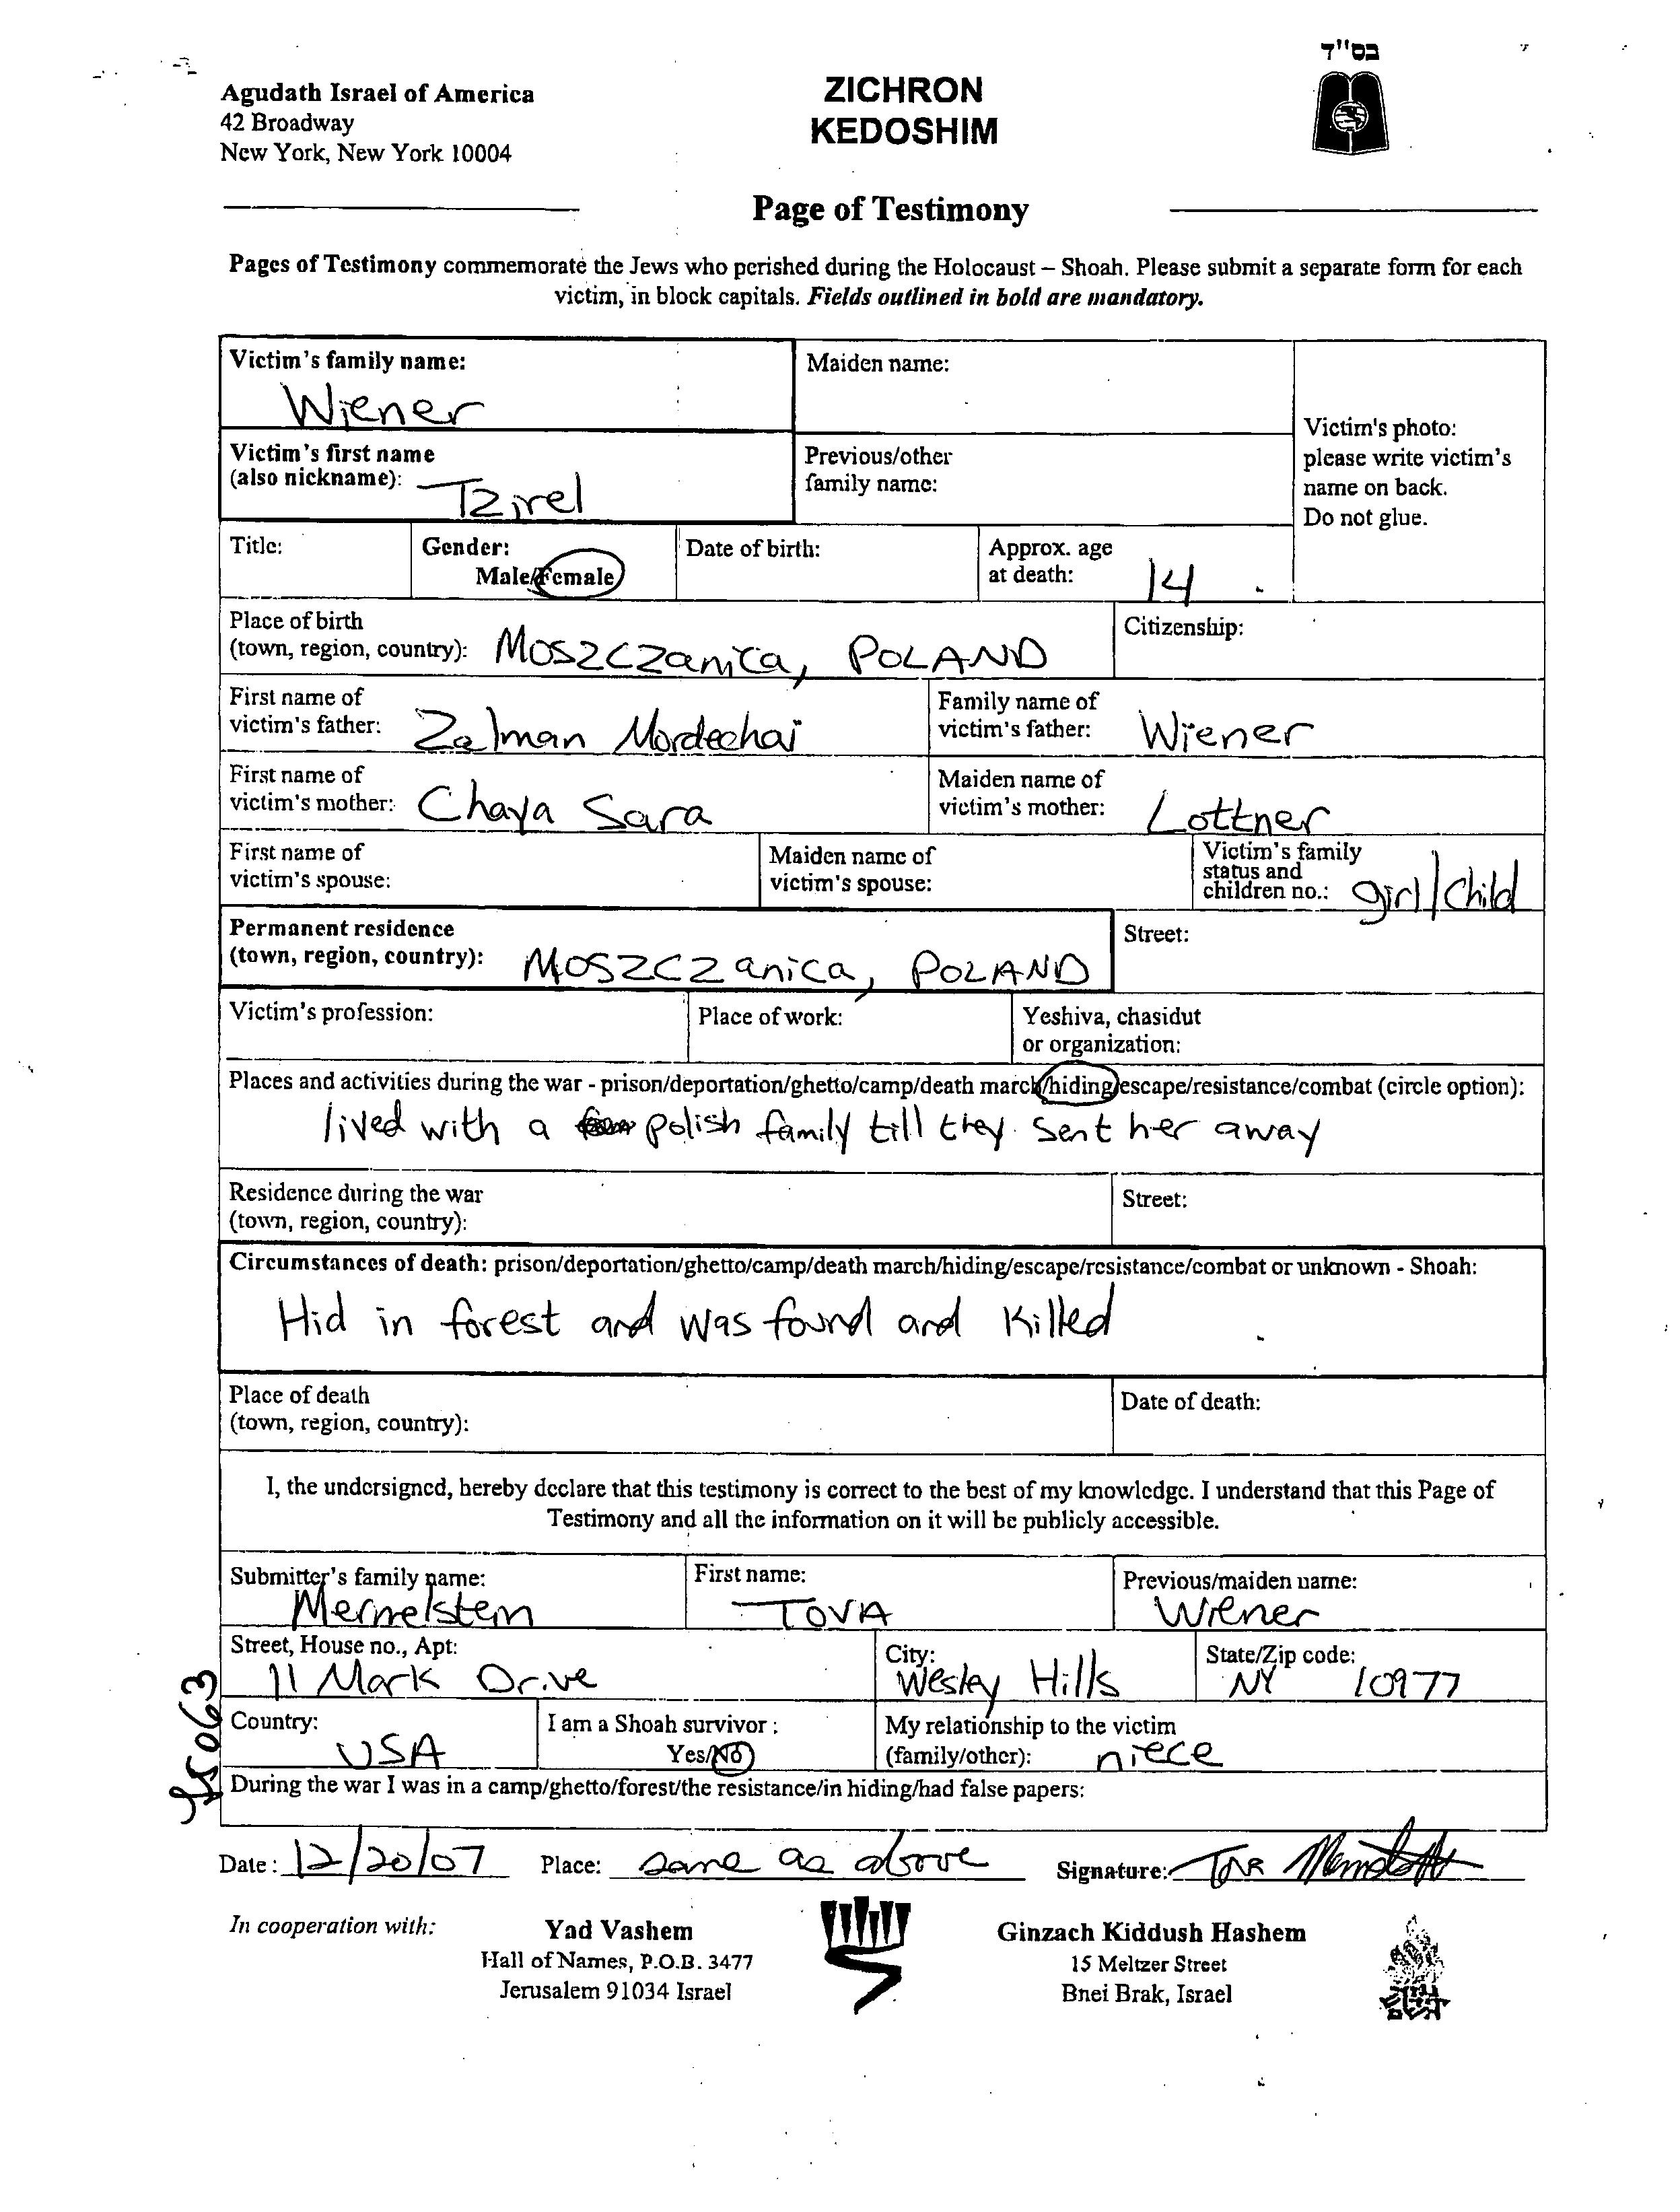 בס"ד
Agudath Israel of America
42 Broadway
New York, New York 10004
ZICHRON
KEDOSHIM
Page of Testimony
Pages of Testimony commemorate the Jews who perished during the Holocaust – Shoah. Please submit a separate form for each
victim, in block capitals. Fields outlined in bold are mandatory.
Victim's family name:
Wiener
Maiden name:
Victim's photo:
please write victim's
name on back.
Do not glue.
Victim's first name
(also nickname): Tzirel
Previous/other
family name:
Title:
Gender:
Male/Female
Date of birth:
Approx. age
at death: 14
Place of birth
(town, region, country): Moszczanica, POLAND
Citizenship:
First name of
victim's father: Zalman Mordechai
Family name of
victim's father: Wiener
First name of
victim's mother: Chaya Sara
Maiden name of
victim's mother: Lottner
First name of
victim's spouse:
Maiden name of
victim's spouse:
Victim's family
status and
children no.: girl/child
Permanent residence
(town, region, country): Moszczanica, POLAND
Street:
Victim's profession:
Place of work:
Yeshiva, chasidut
or organization:
Places and activities during the war - prison/deportation/ghetto/camp/death march/hiding/escape/resistance/combat (circle option):
lived with a polish family till they sent her away
Residence during the war
(town, region, country):
Street:
Circumstances of death: prison/deportation/ghetto/camp/death march/hiding/escape/resistance/combat or unknown - Shoah:
Hid in forest and was found and killed
Place of death
(town, region, country):
Date of death:
I, the undersigned, hereby declare that this testimony is correct to the best of my knowledge. I understand that this Page of
Testimony and all the information on it will be publicly accessible.
Submitter's family name:
Mermelstein
First name:
TOVA
Previous/maiden name:
Wiener
Street, House no., Apt:
11 Mark Drive
City:
Wesley Hills
State/Zip code:
NY 10977
Country:
USA
I am a Shoah survivor :
Yes/No
My relationship to the victim
(family/other): niece
During the war I was in a camp/ghetto/forest/the resistance/in hiding/had false papers:
Date: 12/20/07 Place: same as above Signature:
In cooperation with:
Yad Vashem
Hall of Names, P.O.B. 3477
Jerusalem 91034 Israel
Ginzach Kiddush Hashem
15 Meltzer Street
Bnei Brak, Israel